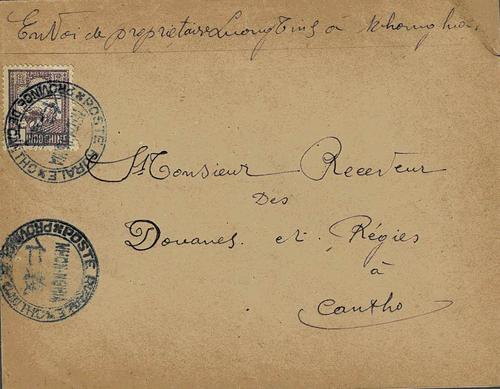 Envoi de propriétaire Luong Tins à Nhonnghia
INDOCHINE
POSTE RURALE PROVINCE DE
Monsieur Receveur
Des
Douanes et Régies
à
Cantho
POSTE RURALE PROVINCE DE
NHON-NGHIA
仁義